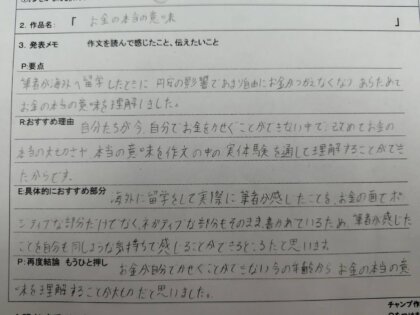 2. 作品名: 「 お金の本当の意味
3. 発表メモ 作文を読んで感じたこと、伝えたいこと
P:要点
筆者が海外へ留学したときに 円安の影響であまり自由にお金がつかえなくなり あらためて
お金の本当の意味を理解しました。
R:おすすめ理由 自分たちが今、自分でお金をかせぐことができない中で、改めてお金の
本当の大切さや、本当の意味を作文の中の実体験を通して理解することができ
たからです。
E:具体的におすすめ部分 海外に留学をして実際に筆者が感じたことを、お金の面でポ
ジティブな部分だけでなく、ネガティブな部分もそのまま書かれているため 筆者が感じた
ことを自分も同じような気持ちで感じることができるところだと思います
P:再度結論 もうひと押し お金が自分でかせぐことができない今の年齢から お金の本当の意
味を理解することが大切だと思いました。
チャンプ作